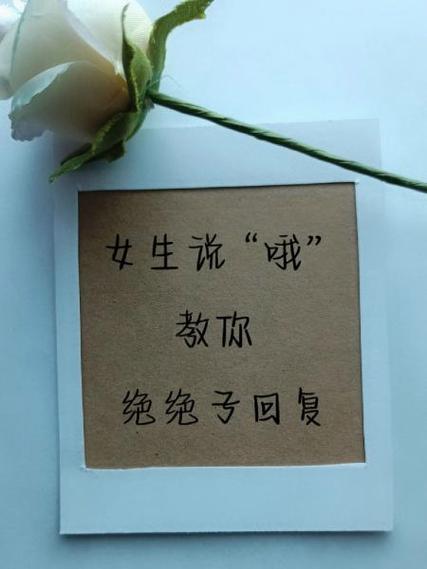 女生说“哦”
教你
绝绝子回复